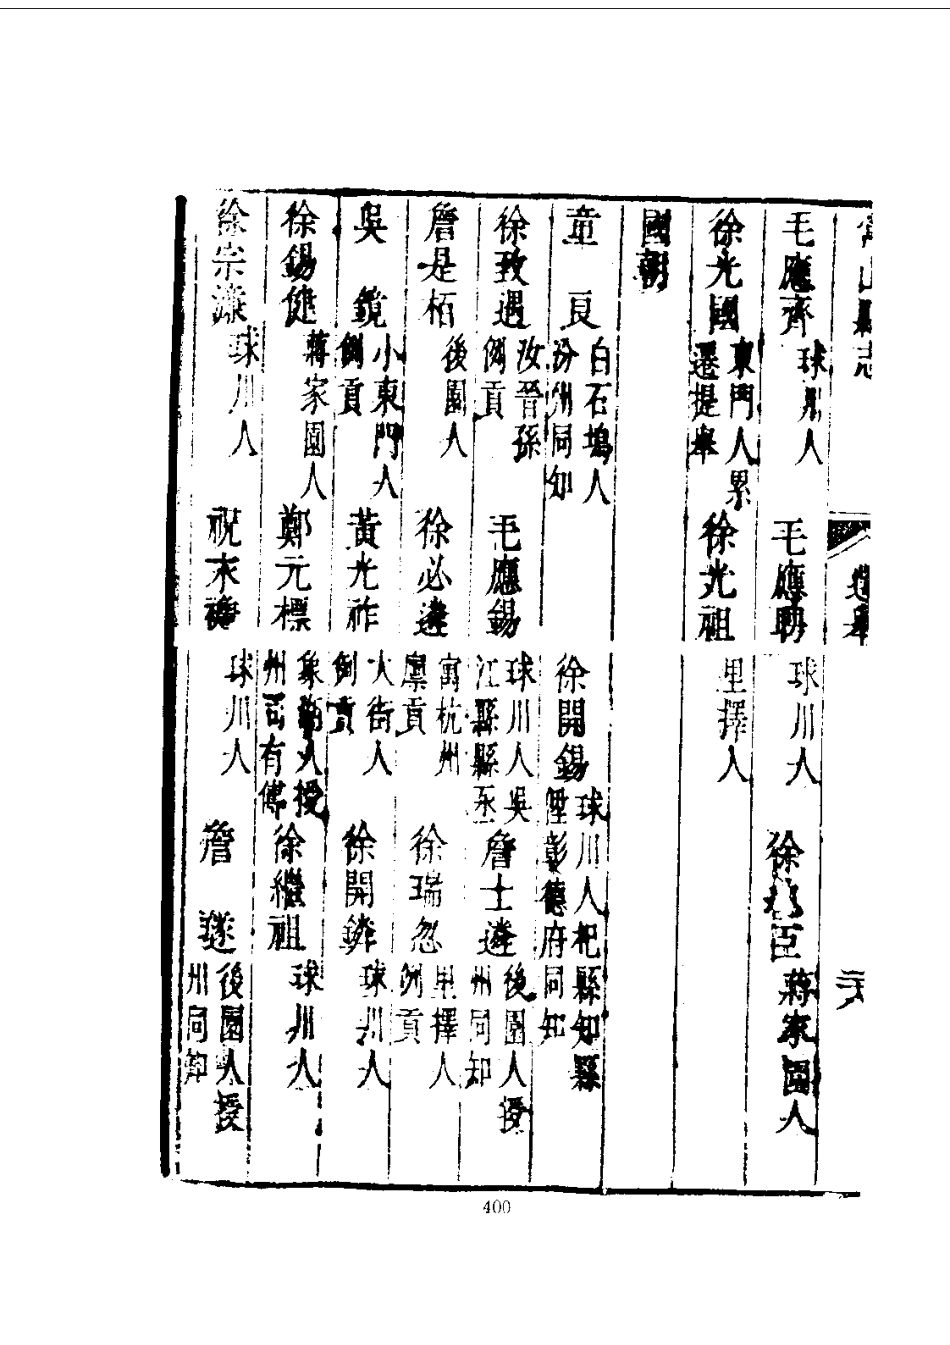 常山縣志 選舉 二六
毛應齊 球川人 毛應聘 球川人 徐 臣 蔣家園人
徐光國 東門人累遷提舉 徐光祖 里擇人
國朝
童良 白石塢人汾州同知 徐開錫 球川人杞縣知縣陞彰德府同知
徐致遇 汝晉孫例貢 毛應錫 球川人吳江縣縣丞 詹士遴 後園人授州同知
詹是栢 後園人 徐必達 寓杭州廩貢 徐瑞忽 里擇人例貢
吳鏡 小東門人例貢 黃光祚 大街人例貢 徐開鏻 球川人
徐錫健 蔣家園人 鄭元標 象湖人授州司有傳 徐繼祖 球川人
徐宗濂 球川人 祝永禧 球川人 詹璲 後園人授州同知
400